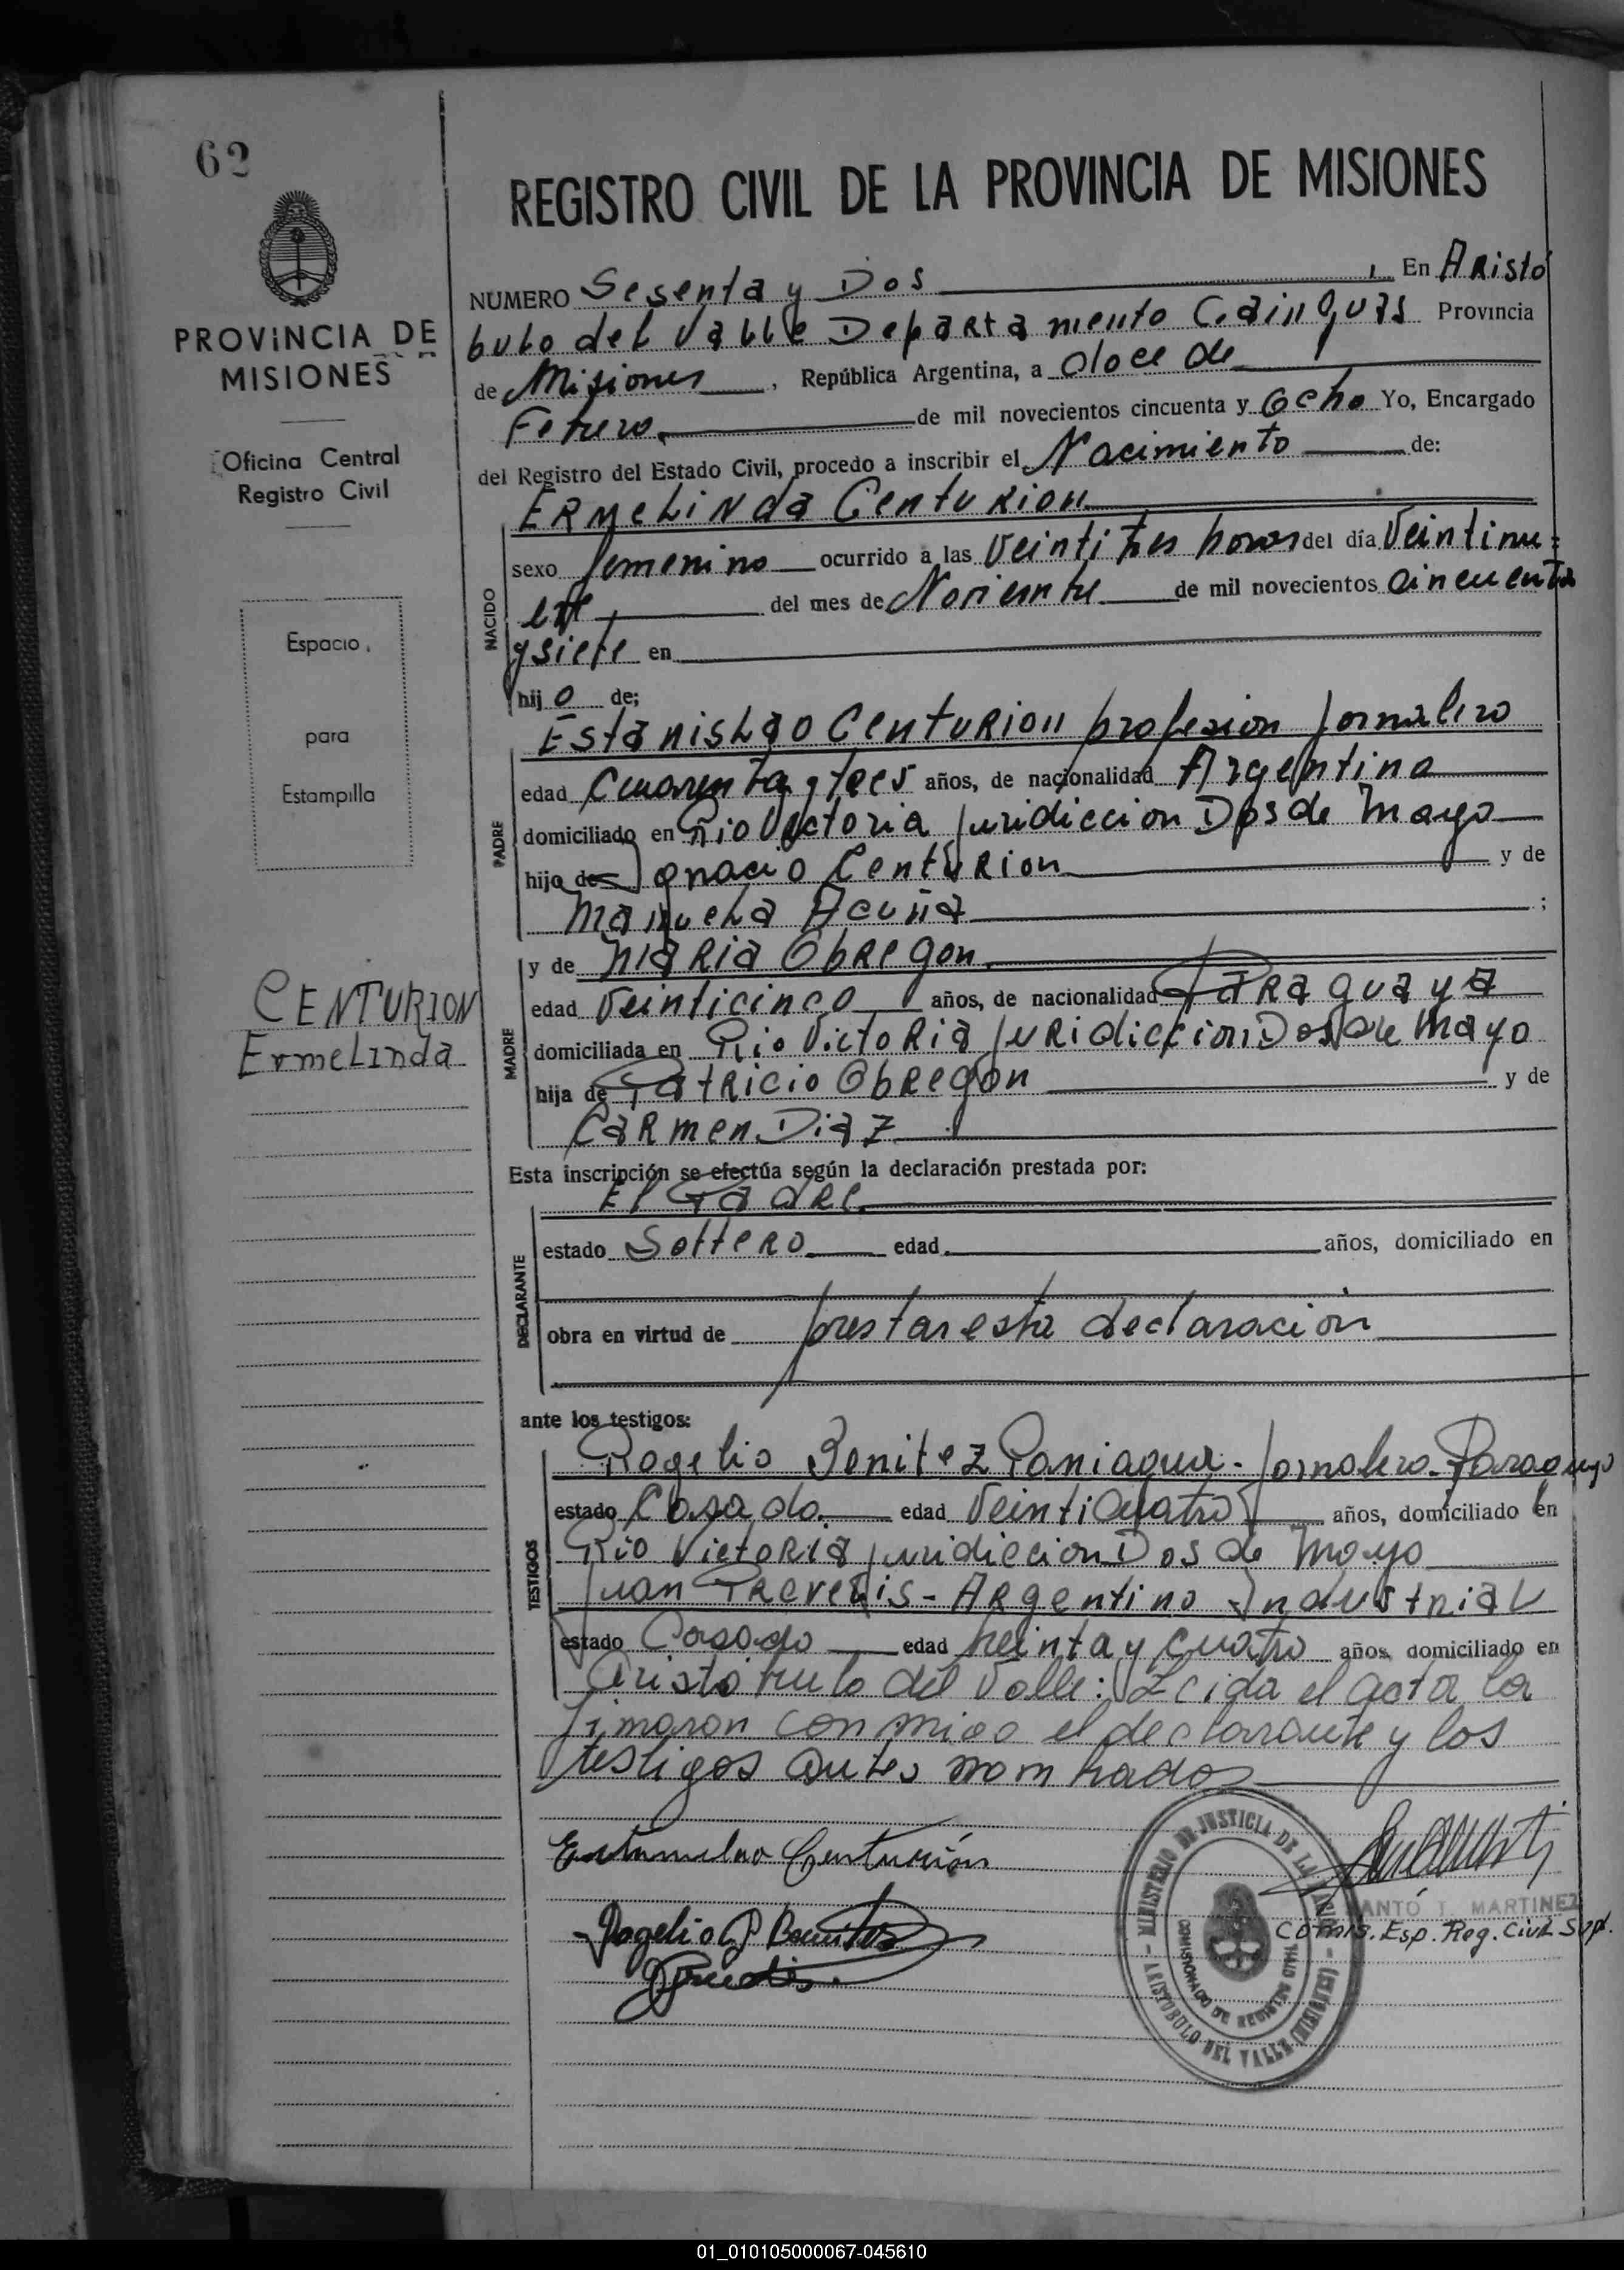 62
PROVINCIA DE
MISIONES
Oficina Central
Registro Civil
Espacio
para
Estampilla
CENTURION
Ermelinda
REGISTRO CIVIL DE LA PROVINCIA DE MISIONES
NUMERO Sesenta y Dos, En Aristó
bulo del Valle Departamento Cainguas Provincia
de Misiones, República Argentina, a doce de
Febrero de mil novecientos cincuenta y Ocho Yo, Encargado
del Registro del Estado Civil, procedo a inscribir el Nacimiento de:
ERMELINda Centurion
NACIDO
sexo femenino ocurrido a las Veintitres horas del día Veintinu=
eve del mes de Noviembre de mil novecientos cincuenta
y siete en
hijo de;
PADRE
Estanislao Centurion profesion Jornalero
edad Cuarenta y tres años, de nacionalidad Argentina
domiciliado en Rio Victoria Juridiccion Dos de Mayo
hijo de Ignacio Centurion y de
Manuela Acuña;
MADRE
y de Maria Obregon
edad Veinticinco años, de nacionalidad Paraguaya
domiciliada en Rio Victoria Juridiccion Dos de Mayo
hija de Patricio Obregon y de
Carmen Diaz
Esta inscripción se efectúa según la declaración prestada por:
DECLARANTE
El Padre
estado Soltero edad años, domiciliado en
obra en virtud de prestar esta declaracion
ante los testigos:
TESTIGOS
Rogelio Benitez Paniagua - Jornalero - Paraguayo
estado Casado edad Veinticuatro años, domiciliado en
Rio Victoria juridiccion Dos de Mayo
Juan - Argentino Industrial
estado Casado edad treinta y cuatro años domiciliado en
Aristobulo del Valle: Leida el acta la
firmaron conmigo el declarante y los
testigos antes nombrados
Estanislao Centurión
Rogelio P Benitez
MINISTERIO DE JUSTICIA DE LA
COMISIONADO DE REGISTRO CIVIL
ARISTOBULO DEL VALLE (MISIONES)
ANTO I. MARTINEZ
Comis. Esp. Reg. Civil Sup.
01_010105000067-045610